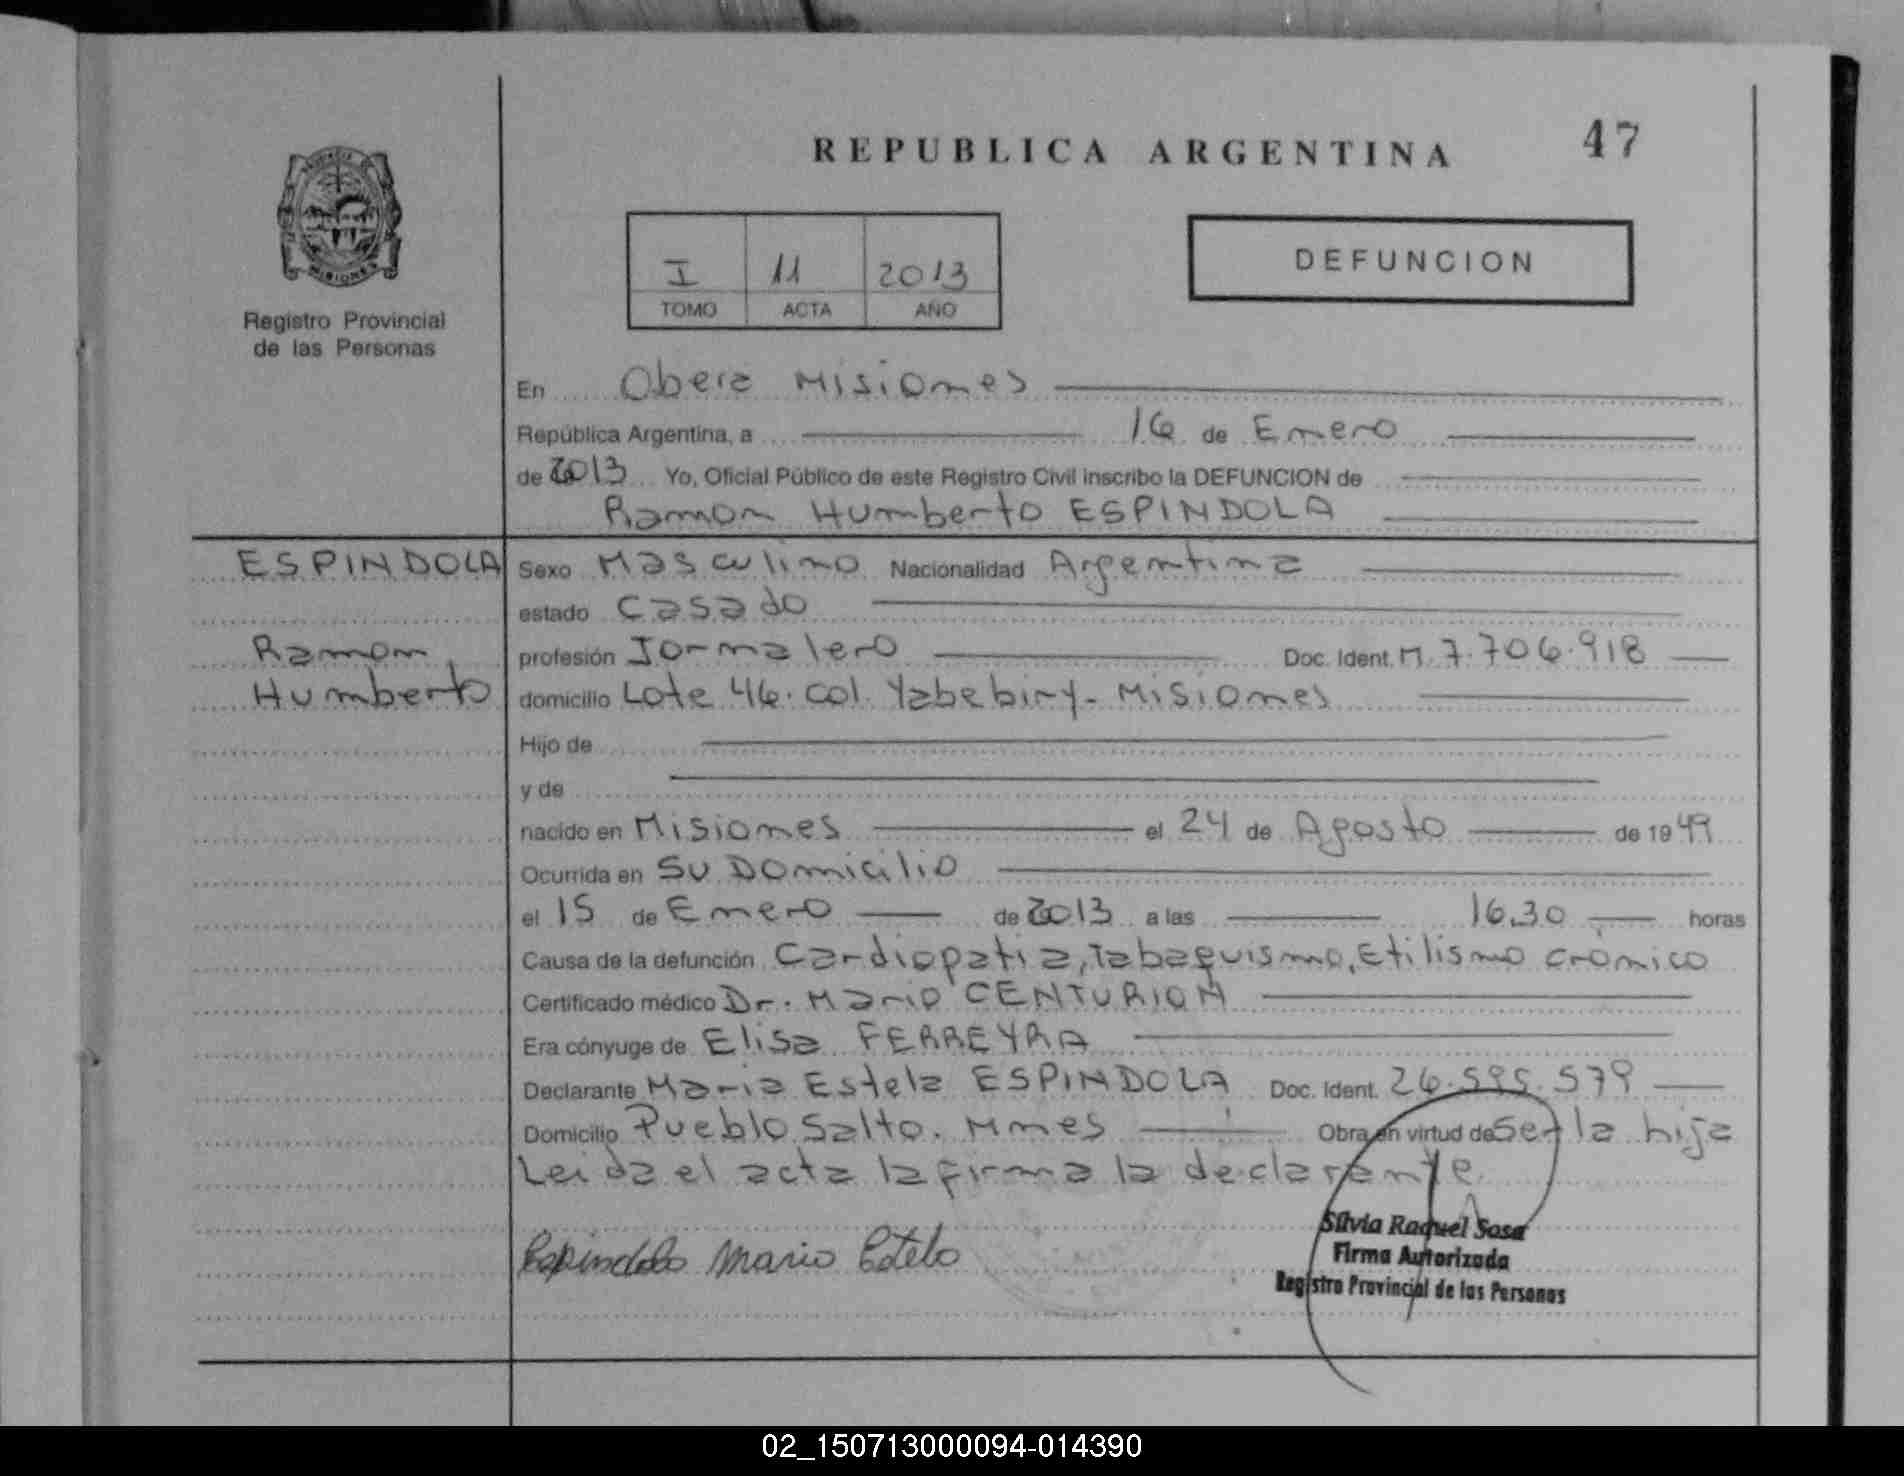 47
REPUBLICA ARGENTINA
MISIONES
Registro Provincial
de las Personas
I 11 2013
TOMO ACTA AÑO
DEFUNCION
En Obera Misiones
República Argentina, a 16 de Enero
de 2013 Yo, Oficial Público de este Registro Civil inscribo la DEFUNCION de
Ramon Humberto ESPINDOLA
ESPINDOLA
Ramon
Humberto
Sexo Masculino Nacionalidad Argentina
estado Casado
profesión Jornalero Doc. Ident. M 7.706.918
domicilio Lote 46. Col. Yabebiry - Misiones
Hijo de
y de
nacido en Misiones el 24 de Agosto de 1949
Ocurrida en Su Domicilio
el 15 de Enero de 2013 a las 16.30 horas
Causa de la defunción Cardiopatia, Tabaquismo, Etilismo cronico
Certificado médico Dr. Mario CENTURION
Era cónyuge de Elisa FERREYRA
Declarante Maria Estela ESPINDOLA Doc. Ident. 26.595.579
Domicilio Pueblo Salto. Mnes Obra en virtud de Ser la hija
Leida el acta la firma la declarante.
Espindola Maria Estela
Silvia Raquel Sosa
Firma Autorizada
Registro Provincial de las Personas
02_150713000094-014390